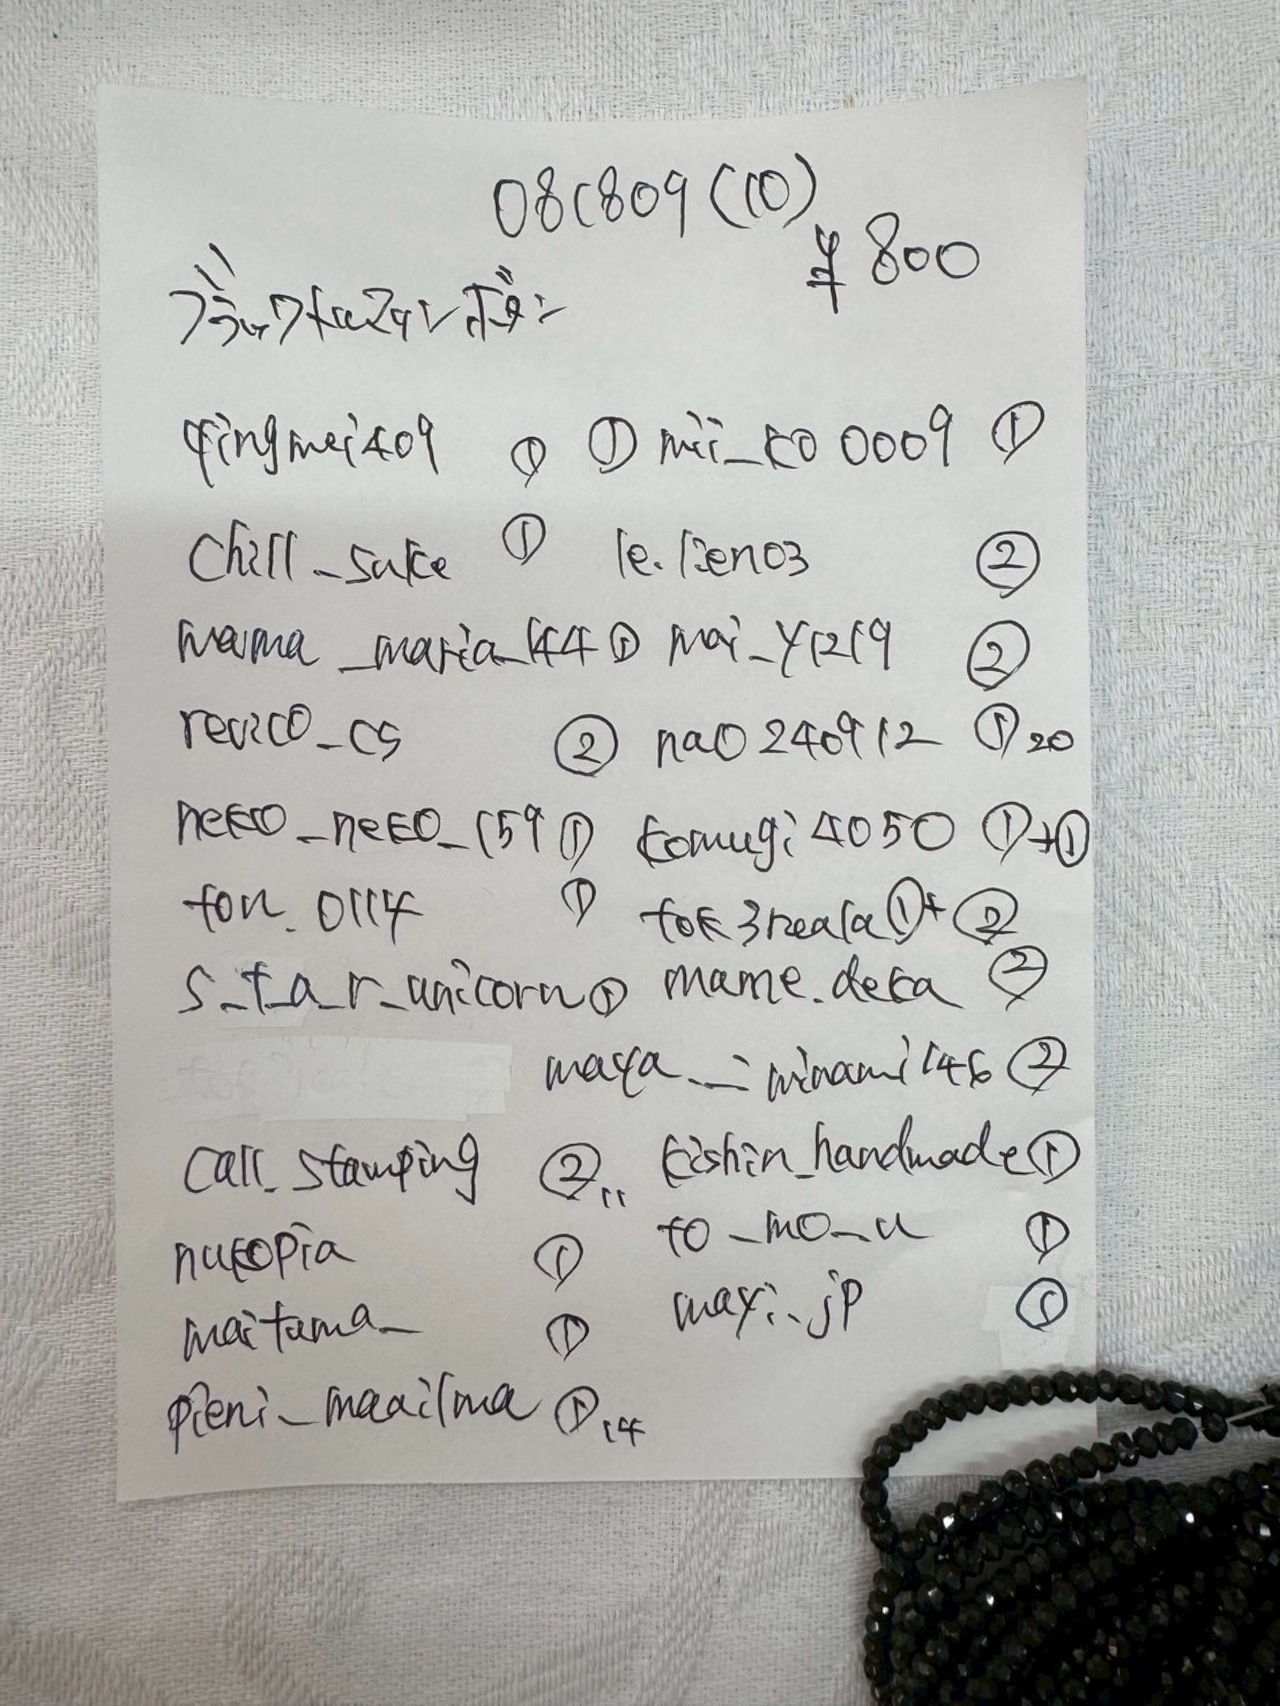 081809(10)
¥800
qingmei409 ① ① mii_ko 0009 ①
Chill_sake ① le.lien03 ②
mama_maria_144 ① mai_y1219 ②
revico_cs ② nao240912 ① 20
neko_neko_159 ① komugi4050 ①+①
ton.0114 ① tok3reala ①+②
s_t_a_r_unicorn ① mame.deka ②
maya._minami146 ②
Call_stamping ② 11 kishin_handmade ①
nukopia ① to_mo_u ①
maitama_ ① mayi._jp ①
pieni_maailma ① 14